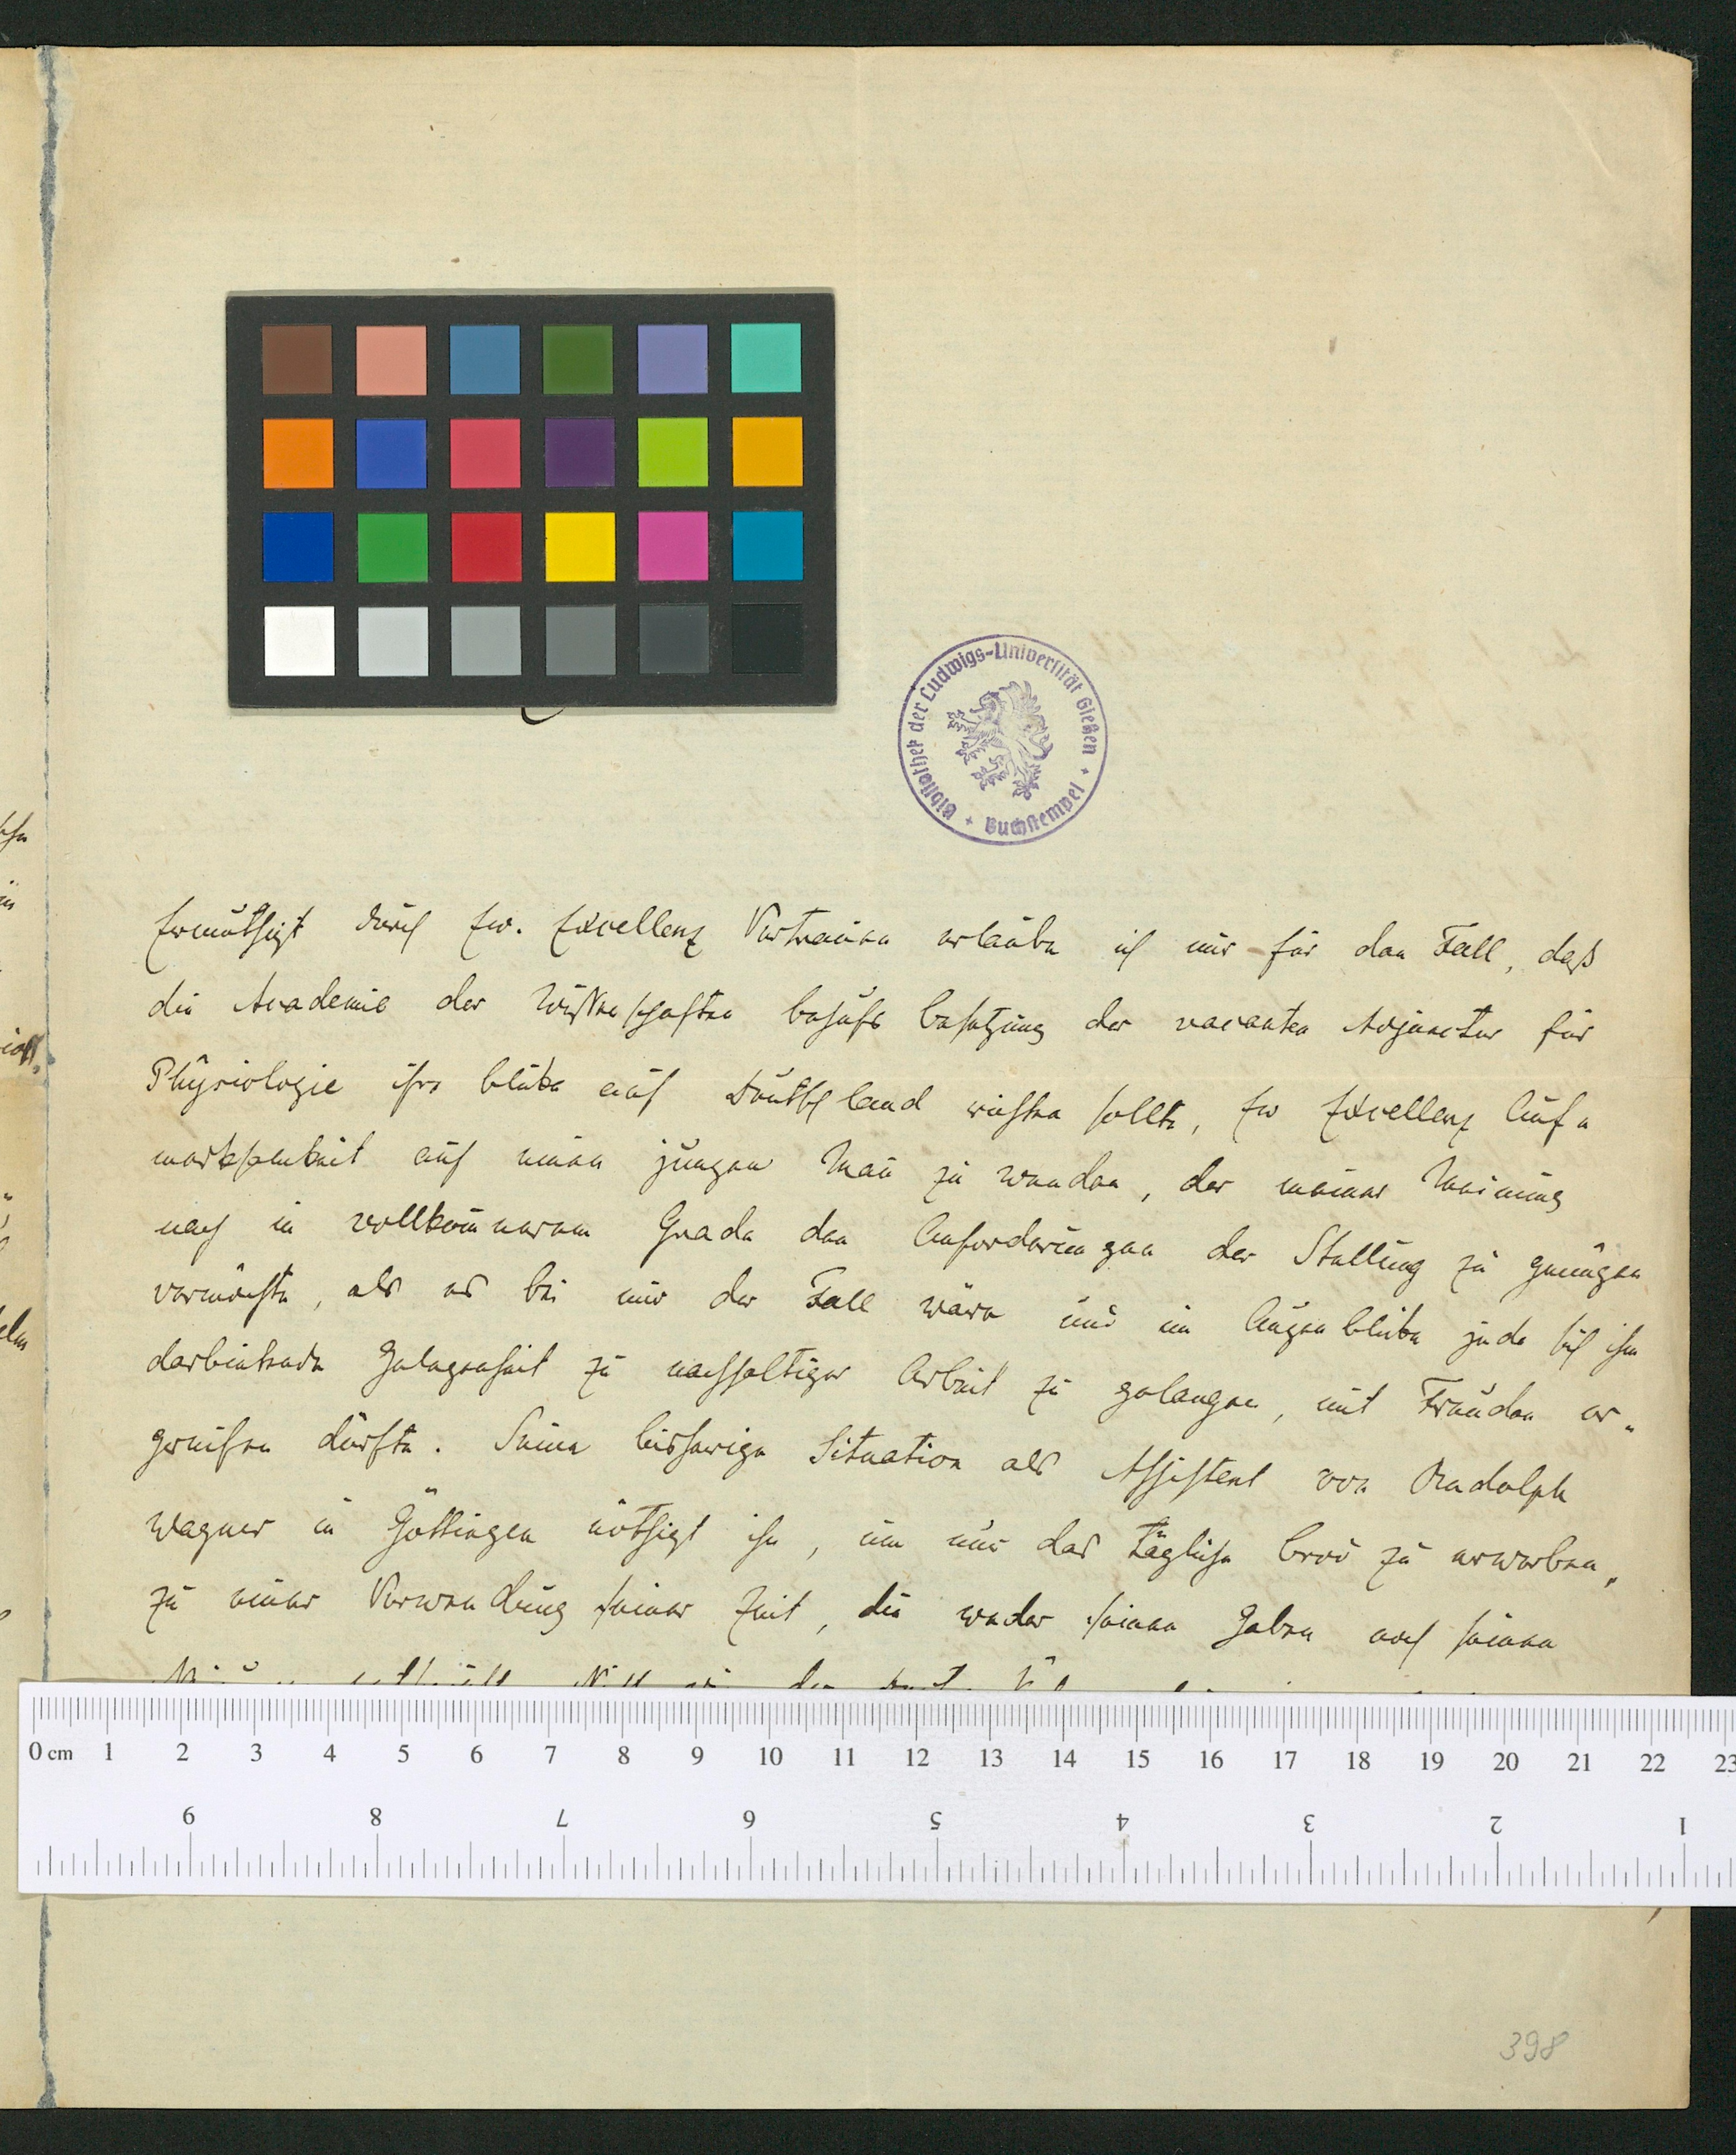 Bibliothek der Ludwigs-Universität Gießen + Buchstempel +
Ermuthigt durch Ew. Excellenz Vertrauen erlaube ich mir für den Fall, daß
die Academie der Wissenschaften behufs Besetzung der vacanten Adjunctur für
Physiologie ihre Blicke auf Deutschland richten sollte, Ew Excellenz Auf„
merksamkeit auf einen jungen Man̄ zu wenden, der meiner Meinung
nach in vollkom̄nerem Grade den Anforderungen der Stellung zu genügen
vermöchte, als es bei mir der Fall wäre und im Augenblicke jede sich ihm
darbietende Gelegenheit zu nachhaltiger Arbeit zu gelangen, mit Freuden er„
greifen dürfte. Seine bisherige Situation als Assistent von Rudolph
Wagner in Göttingen nöthigt ihn, um nur das tägliche Brod zu erwerben,
zu einer Verwendung seiner Zeit, die weder seinen Gaben noch seinen
0 cm 1 2 3 4 5 6 7 8 9 10 11 12 13 14 15 16 17 18 19 20 21 22 23
9 8 7 6 5 4 3 2 1
398